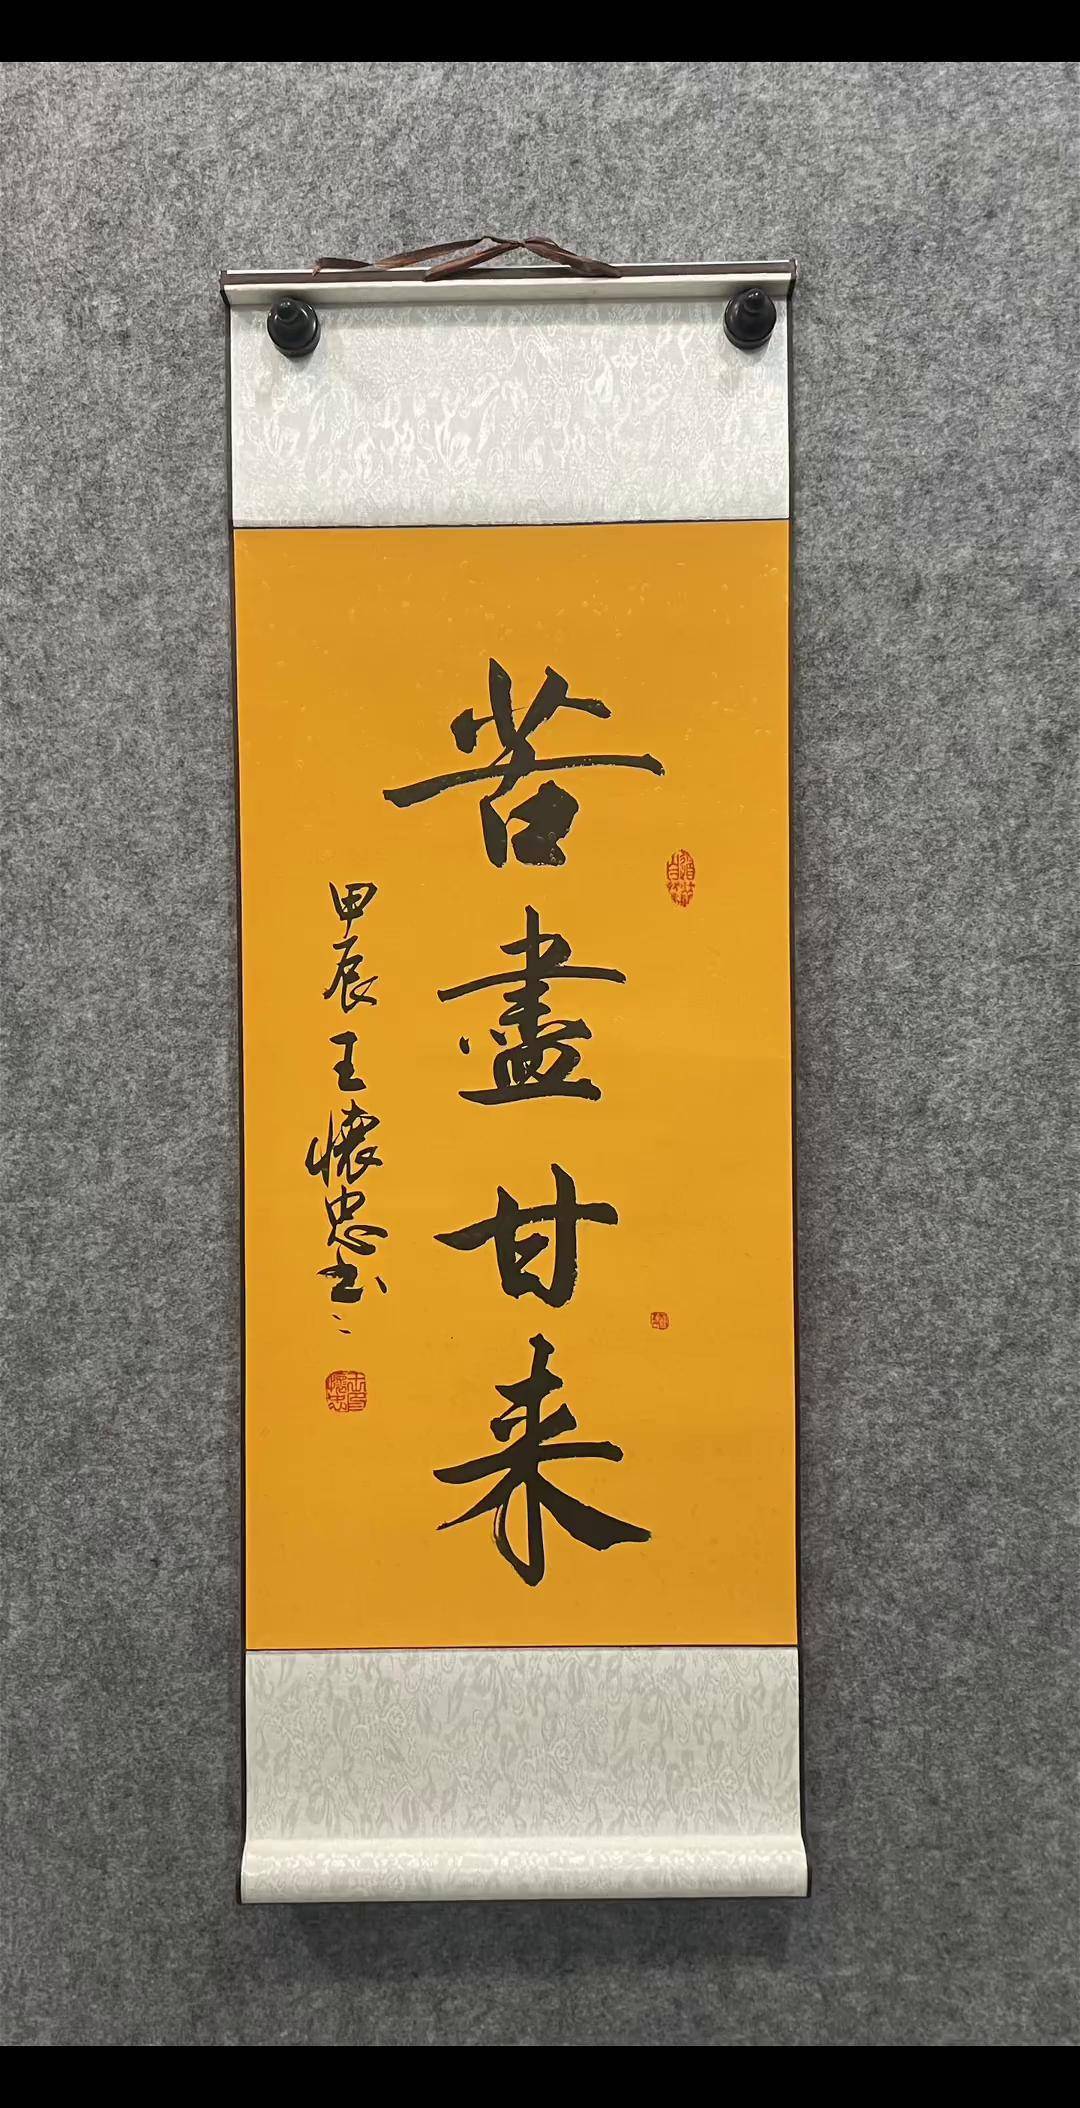 苦盡甘来
甲辰王懷忠书